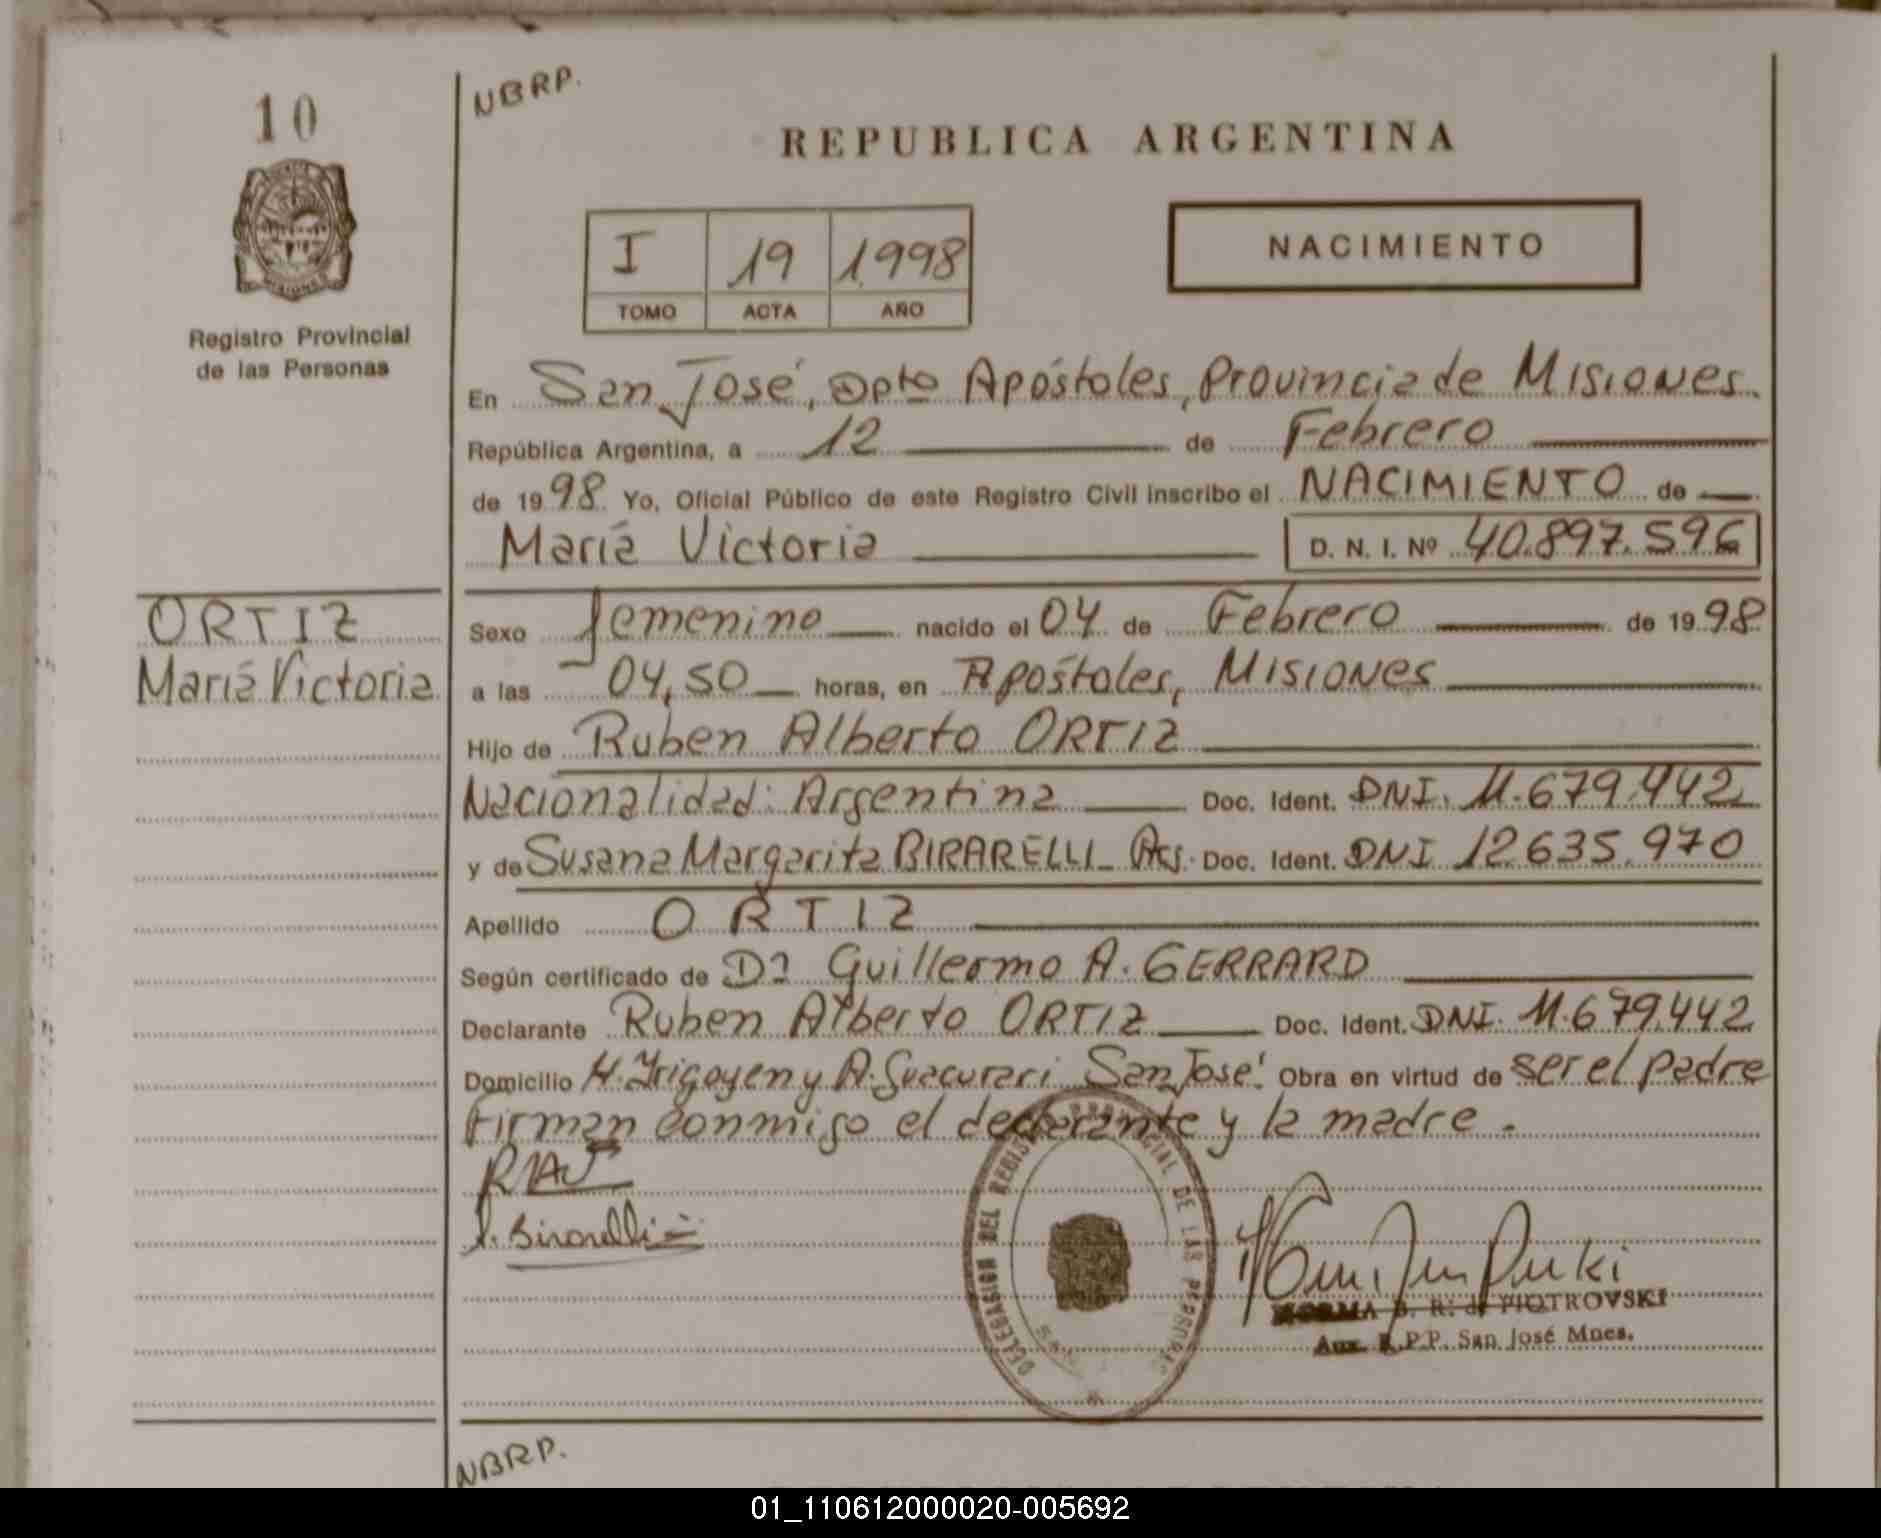 10
NBRP.
REPUBLICA ARGENTINA
I 19 1998
TOMO ACTA AÑO
NACIMIENTO
MISIONES
Registro Provincial
de las Personas
En San José, Dpto Apóstoles, Provincia de Misiones.
República Argentina, a 12 de Febrero
de 1998 Yo, Oficial Público de este Registro Civil inscribo el NACIMIENTO de
María Victoria D. N. I. Nº 40.897.596
ORTIZ
María Victoria
Sexo femenino nacido el 04 de Febrero de 1998
a las 04,50 horas, en Apóstoles, Misiones
Hijo de Ruben Alberto ORTIZ
Nacionalidad: Argentina Doc. Ident. DNI. 11.679.442
y de Susana Margarita BIRARELLI Arg. Doc. Ident. DNI 12.635.970
Apellido ORTIZ
Según certificado de Dr Guillermo A. GERRARD
Declarante Ruben Alberto ORTIZ Doc. Ident. DNI. 11.679.442
Domicilio H. Yrigoyen y A. Guacurari San José. Obra en virtud de ser el padre
Firman conmigo el declarante y la madre.
S. Birarelli
DELEGACION DEL REGISTRO PROVINCIAL DE LAS PERSONAS
NORMA B. R. de PIOTROVSKI
Aux. R.P.P. San José Mnes.
NBRP.
01_110612000020-005692